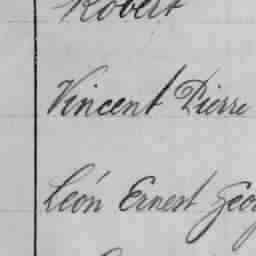 Robert
Vincent Pierre
Léon Ernest Geo